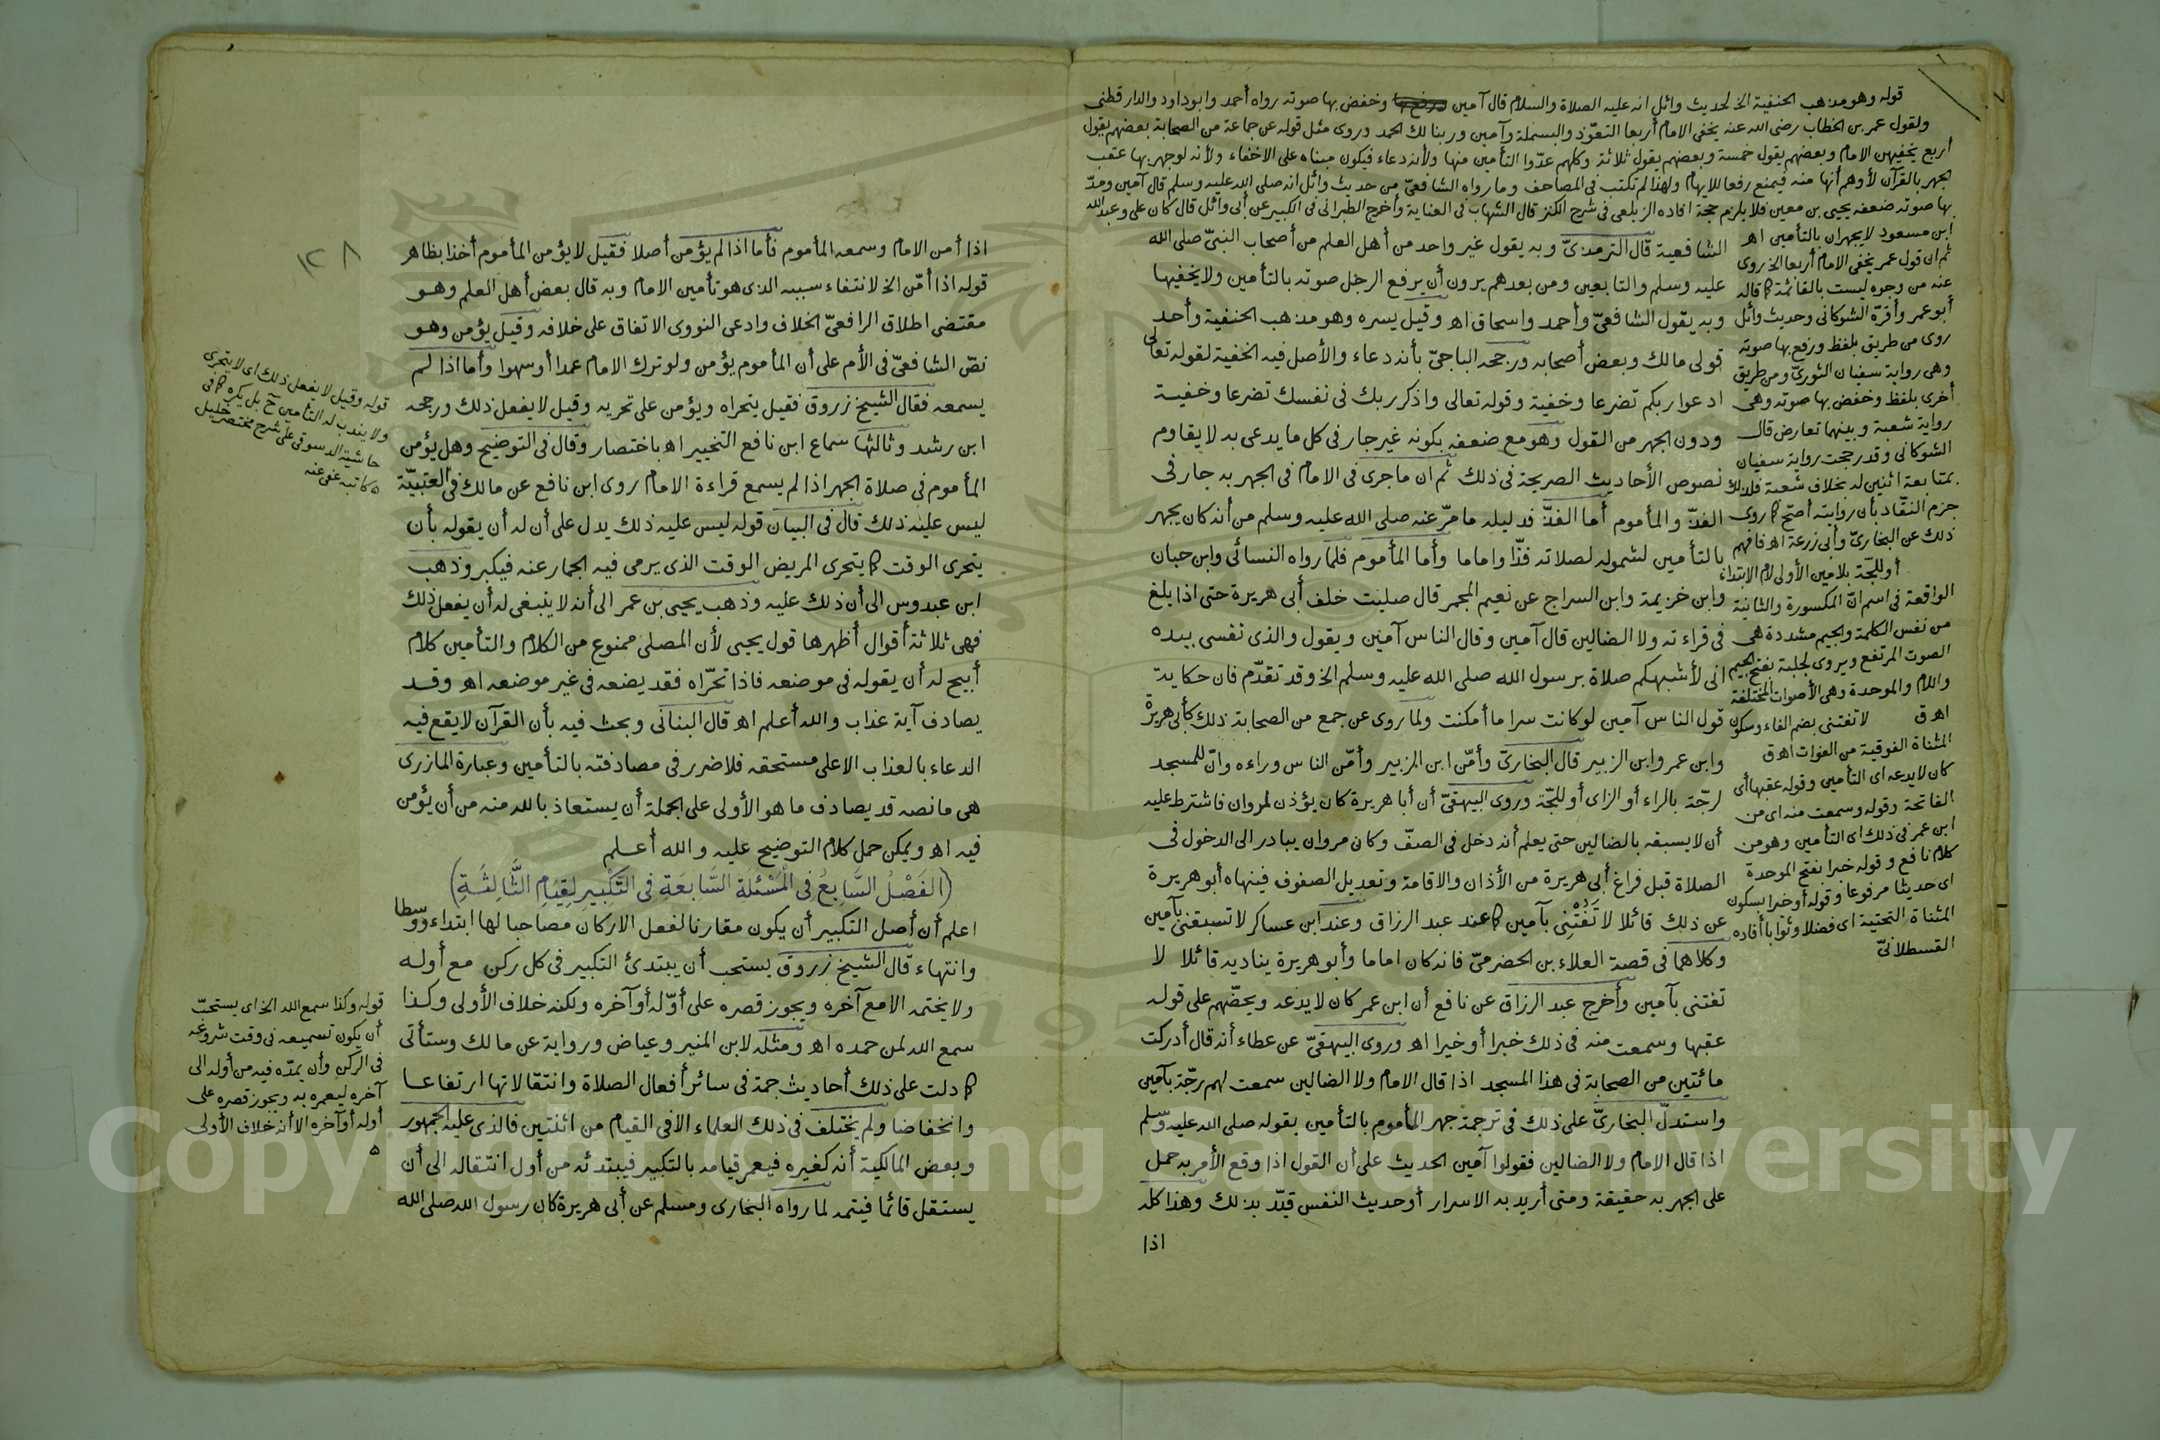 قوله وهو مذهب الحنفية الخ لحديث وائل انه عليه الصلاة والسلام قال آمين وخفض بها صوته رواه أحمد وابو داود والدارقطني
ولقول عمر بن الخطاب رضى الله عنه يخفى الامام أربعا التعوّذ والبسملة وآمين وربنا لك الحمد وروى مثل قوله عن جماعة من الصحابة بعضهم يقول
أربع يخفيهن الامام وبعضهم يقول خمسة وبعضهم يقول ثلاثة وكلهم عدّوا التأمين منها ولأنه دعاء فيكون مبناه على الاخفاء ولأنه لو جهر بها عقب
الجهر بالقرآن لأوهم أنها منه فيمنع رفعا للايهام ولهذا لم تكتب فى المصاحف وما رواه الشافعىّ من حديث وائل انه صلى الله عليه وسلم قال آمين ومدّ
بها صوته ضعفه يحيى بن معين فلا يلزم حجة افاده الزيلعى فى شرح الكنز قال الشهاب فى العناية وأخرج الطبرانى فى الكبير عن أبى وائل قال كان على وعبد الله
ابن مسعود لا يجهران بالتأمين اهـ
ثم ان قول عمر يخفى الامام أربعا الخ روى
عنه من وجوه ليست بالقائمة كما قاله
أبو عمر وأقرّه الشوكانى وحديث وائل
روى من طريق بلفظ ورفع بها صوته
وهى رواية سفيان الثورىّ ومن طريق
أخرى بلفظ وخفض بها صوته وهى
رواية شعبة وبينهما تعارض قال
الشوكانى وقد رجحت رواية سفيان
بمتابعة اثنين له بخلاف شعبة فلذلك
جزم النقّاد بأن روايته أصح كما روى
ذلك عن البخارىّ وأبى زرعة اهـ فافهم
أو للجّة بلامين الأولى لام الابتداء
الواقعة فى اسم انّ المكسورة والثانية
من نفس الكلمة والجيم مشددة هى
الصوت المرتفع ويروى لجلبة بفتح الجيم
واللام والموحدة وهى الأصوات المختلفة
اهـ ق لا تفتنى بضم الفاء وسكون
المثناة الفوقية من الفوات اهـ ق
كان لا يدعه اى التأمين وقوله عقبها أى
الفاتحة وقوله وسمعت منه اى من
ابن عمر فى ذلك اى التأمين وهو من
كلام نافع وقوله خبرا بفتح الموحدة
اى حديثا مرفوعا وقوله أو خيرا بسكون
المثناة التحتية اى فضلا وثوابا أفاده
القسطلانىّ
الشافعية قال الترمذىّ وبه يقول غير واحد من أهل العلم من أصحاب النبىّ صلى الله
عليه وسلم والتابعين ومن بعدهم يرون أن يرفع الرجل صوته بالتأمين ولا يخفيها
وبه يقول الشافعىّ وأحمد واسحاق اهـ وقيل يسره وهو مذهب الحنفية وأحد
قولى مالك وبعض أصحابه ورجحه الباجىّ بأنه دعاء والأصل فيه الخفية لقوله تعالى
ادعوا ربكم تضرعا وخفية وقوله تعالى واذكر ربك فى نفسك تضرعا وخفيـة
ودون الجهر من القول وهو مع ضعفه بكونه غير جار فى كل ما يدعى به لا يقاوم
نصوص الأحاديث الصريحة فى ذلك ثم ان ما جرى فى الامام فى الجهر به جار فى
الفذّ والمأموم أما الفذّ فدليله ما مرّ عنه صلى الله عليه وسلم من أنه كان يجهر
بالتأمين لشموله لصلاته فذّا واماما وأما المأموم فلما رواه النسائى وابن حبان
وابن خزيمة وابن السراج عن نعيم المجمر قال صليت خلف أبى هريرة حتى اذا بلغ
فى قراءته ولا الضالين قال آمين وقال الناس آمين ويقول والذى نفسى بيده
انى لأشبهكم صلاة برسول الله صلى الله عليه وسلم الخ وقد تقدّم فان حكاية
قول الناس آمين لو كانت سرا ما أمكنت ولما روى عن جمع من الصحابة ذلك كأبى هريرة
وابن عمر وابن الزبير قال البخارىّ وأمّن ابن الزبير وأمّن الناس وراءه وانّ للمسجد
لرجّة بالراء أو الزاى أو للجّة وروى البيهقىّ أن أبا هريرة كان يؤذن لمروان فاشترط عليه
أن لا يسبقه بالضالين حتى يعلم أنه دخل فى الصفّ وكان مروان يبادر الى الدخول فى
الصلاة قبل فراغ أبى هريرة من الأذان والاقامة وتعديل الصفوف فينهاه أبو هريرة
عن ذلك قائلا لا تَفُتْنى بآمين كما عند عبد الرزاق وعند ابن عساكر لا تسبقنى بآمين
وكلاهما فى قصة العلاء بن الحضرمىّ فانه كان اماما وأبو هريرة يناديه قائلا لا
تفتنى بآمين وأخرج عبد الرزاق عن نافع أن ابن عمر كان لا يدعه ويحضّهم على قوله
عقبها وسمعت منه فى ذلك خبرا أو خيرا اهـ وروى البيهقىّ عن عطاء أنه قال أدركت
مائتين من الصحابة فى هذا المسجد اذا قال الامام ولا الضالين سمعت لهم رجّة بآمين
واستدلّ البخارىّ على ذلك فى ترجمة جهر المأموم بالتأمين بقوله صلى الله عليه وسلم
اذا قال الامام ولا الضالين فقولوا آمين الحديث على أن القول اذا وقع الأمر به حمل
على الجهر به حقيقة ومتى أريد به الاسرار أو حديث النفس قيّد بذلك وهذا كله
اذا
١٢٨
اذا أمن الامام وسمعه المأموم فأما اذا لم يؤمن أصلا فقيل لا يؤمن المأموم أخذا بظاهر
قوله اذا أمّن الخ لانتفاء سببه الذى هو تأمين الامام وبه قال بعض أهل العلم وهـو
مقتضى اطلاق الرافعىّ الخلاف وادعى النووى الاتفاق على خلافه وقيل يؤمن وهـو
نصّ الشافعىّ فى الأم على أن المأموم يؤمن ولو ترك الامام عمدا أو سهوا وأما اذا لـم
يسمعه فقال الشيخ زروق فقيل يتحراه ويؤمن على تحريه وقيل لا يفعل ذلك ورجحه
ابن رشد وثالثها سماع ابن نافع التخيير اهـ باختصار وقال فى التوضيح وهل يؤمن
المأموم فى صلاة الجهر اذا لم يسمع قراءة الامام روى ابن نافع عن مالك فى العتبيّة
ليس عليه ذلك قال فى البيان قوله ليس عليه ذلك يدل على أن له أن يقوله بأن
يتحرى الوقت كما يتحرى المريض الوقت الذى يرمى فيه الجمار عنه فيكبر وذهب
ابن عبدوس الى أن ذلك عليه وذهب يحيى بن عمر الى أنه لا ينبغى له أن يفعل ذلك
فهى ثلاثة أقوال أظهرها قول يحيى لأن المصلى ممنوع من الكلام والتأمين كلام
أبيح له أن يقوله فى موضعه فاذا تحرّاه فقد يضعه فى غير موضعه اهـ وقـد
يصادف آية عذاب والله أعلم اهـ قال البنانى وبحث فيه بأن القرآن لا يقع فيه
الدعاء بالعذاب الا على مستحقه فلا ضرر فى مصادفته بالتأمين وعبارة المازرى
هى ما نصه قد يصادف ما هو الأولى على الجملة أن يستعاذ بالله منه من أن يؤمن
فيه اهـ ويمكن حمل كلام التوضيح عليه والله أعـلـم
(الفَصْلُ السَّابِعُ فِى المَسْئَلَةِ السَّابِعَةِ فِى التَّكْبِيرِ لِقِيَامِ الثَّالِثَـةِ)
اعلم أن أصل التكبير أن يكون مقارنا لفعل الاركان مصاحبا لها ابتداء ووسطا
وانتهاء قال الشيخ زروق يستحب أن يبتدئ التكبير فى كل ركن مع أولـه
ولا يختمه الا مع آخره ويجوز قصره على أوّله أو آخره ولكنه خلاف الأولى وكـذا
سمع الله لمن حمده اهـ ومثله لابن المنير وعياض ورواية عن مالك وستأتى
كما دلت على ذلك أحاديث جمة فى سائر أفعال الصلاة وانتقالاتها ارتفاعـا
وانخفاضا ولم يختلف فى ذلك العلماء الا فى القيام من اثنتين فالذى عليه الجمهور
وبعض المالكية أنه كغيره فيعمر قيامه بالتكبير فيبتدئه من أول انتقاله الى أن
يستقل قائما فيتمه لما رواه البخارى ومسلم عن أبى هريرة كان رسول الله صلى الله
قوله وقيل لا يفعل ذلك اى لا يتحرى
ولا يندب له التأمين ح بل يكره كما فى
حاشية الدسوقى على شرح مختصر خليل
ه كاتبه عفى عنه
قوله وكذا سمع الله الخ اى يستحبّ
أن يكون تسميعه فى وقت شروعه
فى الركن وأن يمدّه فيه من أوله الى
آخره ليعمره به ويجوز قصره على
أوله أو آخره الا أنه خلاف الأولى
ه
Copyright © King Saud University